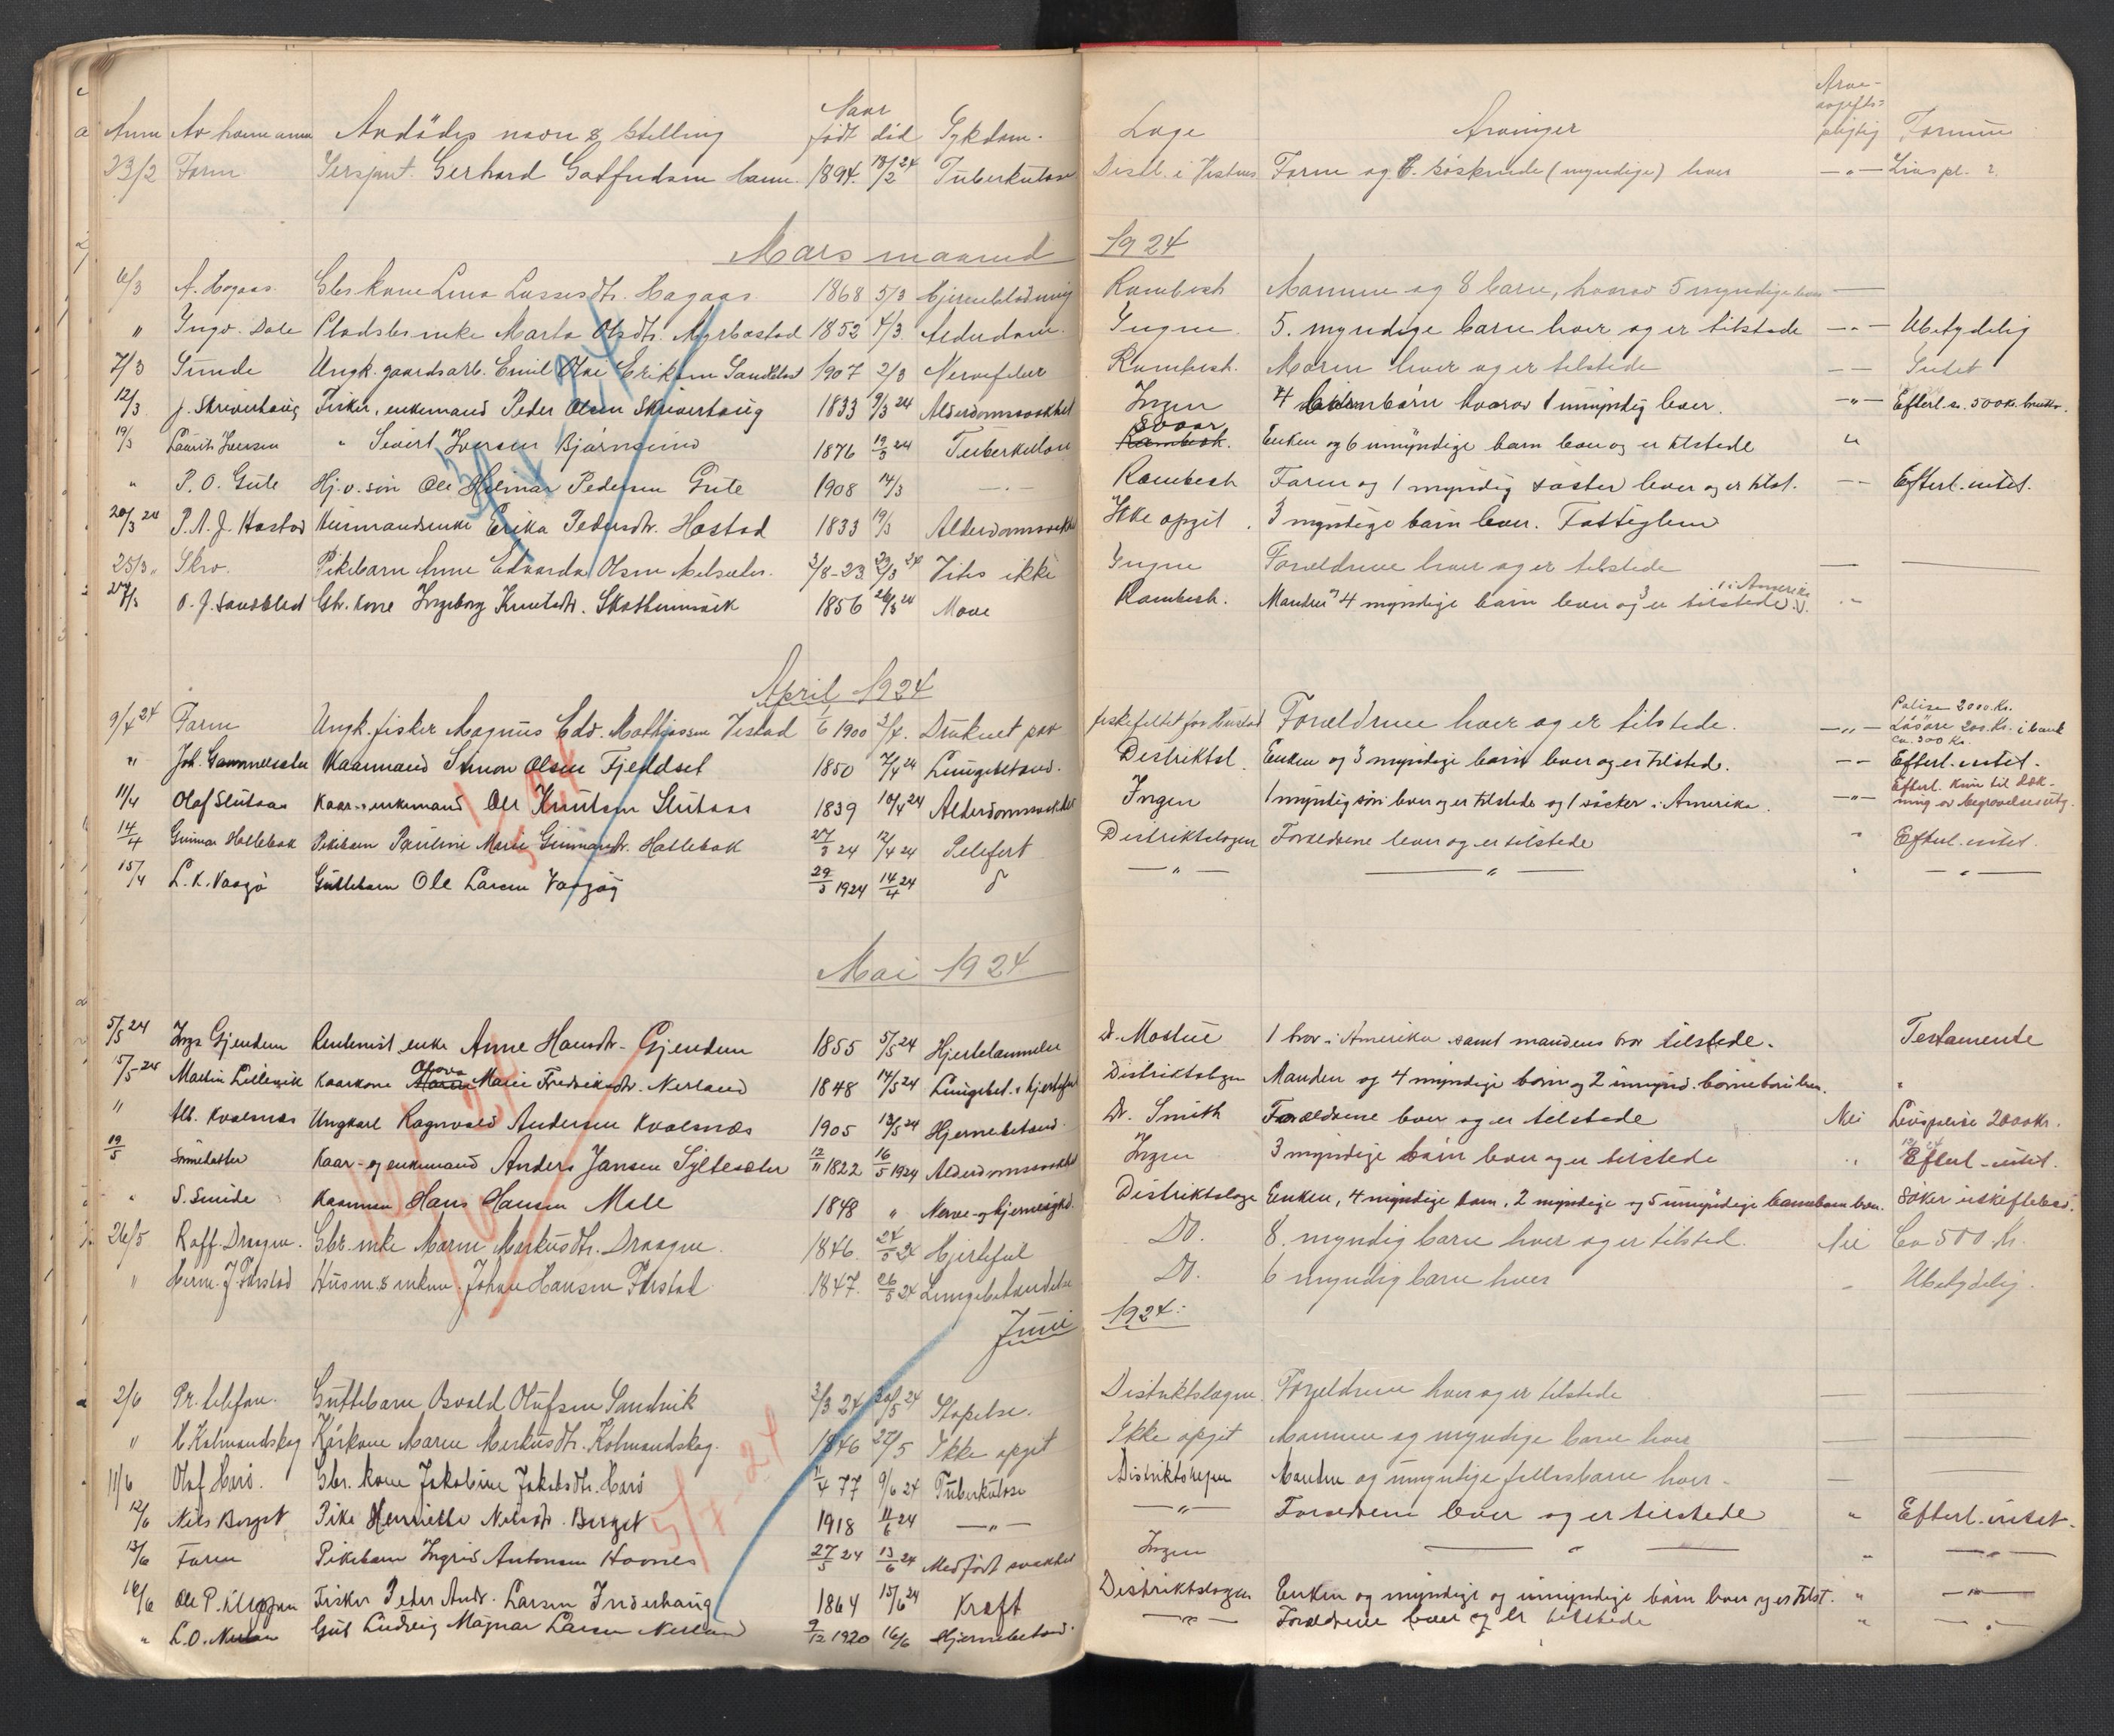 Anm Av hvem anm Avdödes navn & Stilling Naar født död Sykdom. Læge Arvinger Arve-avgifts-pligtig Formue
23/2 Farm Sersjant. Gerhard Gotfredsen 1894. 18/2 24 Tuberkulose Distl. i Vestnes Farm og 6. söskende (myndige) lever — " — Livs pl. ?
Mars maaned 1924
6/3 A. Hagaas. Gbr. kone Lina Lasses dtr. Hagaas 1868 5/3 Hjerneblødning Rambech Mannen og 8 barn, hvorav 5 myndige lever —
" Ingv. Dale Pladsbr. enke Marta Olsdtr. Myrbostad 1852 4/3. Alderdom. Ingen. 5. myndige barn lever og er tilstede — " — Ubetydelig
7/3 Sunde Ungk. gaardsarb. Emil Olai Eriksen Sandblad 1907 2/3 Nervefeber Rambech. Moren lever og er tilstede — — Intet
12/3. J. Skriverhaug Fisker, enkemand Peder Olsen Skriverhaug 1833 9/3 24 Alderdomssvakhet Ingen 4 barn hvorav 1 umyndig lever. — " — Efterl. ca. 500 kr. brutto.
19/3 Laurits Iversen " Sivert Iversen Bjørnsund 1876 19/3 24 Tuberkulose Rambech. Enken og 6 umyndige barn lever og er tilstede "
" P. O. Gule Hj.v. sön Ole Hilmar Pedersen Gule 1908 14/3 — . — Rambech Faren og 1 myndig søster lever og er tilst. — — Efterl. intet.
20/3 24 P. A. J. Hostad Husmandsenke Erika Pedersdtr. Hostad 1833 19/3 Alderdomssvakhet Ikke opgit. 3 myndige barn lever. Fattiglem
25/3 " Skro. Pikebarn Anne Edvarda Olsen Melsæter. 3/8-23. 22/3 24 Vites ikke Ingen Forældrene lever og er tilstede — —
27/3 O. J. Sandblad Gbr. kone Ingeborg Knutsdtr. Skotheimsvik 1856 26/3 24 Mave Rambech. Manden 4 myndige barn lever og 3 er tilstede. 1 i Amerika . —
April 1924
9/4 24 Farm Ungk. fisker Magnus Edv. Mathiassen Vestad 1/6 1900 3/4. Druknet paa fiskefeltet for Bustad Forældrene lever og er tilstede. — " — Polise 2000. Kr. Løsøre 200. Kr. i bank ca. 300 Kr.
" Joh. Gammelsæter Kaarmand Simon Olsen Fjeldset 1850 7/4 24 Lungebetænd. Distriktsl. Enken og 3 myndige barn lever og er tilstede. — — Efterl. intet.
11/4 Olaf Slutaas Kaar- enkemand Ole Knutsen Slutaas 1839 10/4 24 Alderdomssvakhet Ingen 1 myndig sön lever og er tilstede og 1 søster i Amerika. — " — Efterl. kun til dæk-ning av begravelsesutg.
14/4 Gunnar Hollebak Pikebarn Pauline Marie Gunnarsdtr. Hollebak 27/3 24 12/4 24 Pelefert Distriktslægen Forældrene lever og er tilstede " Efterl. intet.
15/4 L. K. Vaagø Guttebarn Ole Larsen Vaagøy 29/3 1924 14/4 24 — " — — " — " — " —
Mai 1924
5/5 24 Inga Gjendem Rentenist enke Anne Hansdtr. Gjendem 1855 5/5 24 Hjertelammelse Dr. Mostue 1 bror i Amerika samt mandens bror tilstede. Testamente
15/5 24 Martin Lillevik Kaarkone Olava Marie Fredriksdtr. Nerland 1848 14/5 24 Lungebet. & hjertefeil Distriktslægen Manden og 4 myndige barn og 2 umynd. barnebarn lever. "
" Alb. Kvalsnes Ungkarl Ragnvald Andersen Kvalsnes 1905 13/5 24 Hjernebetænd. Dr. Smith Forældrene lever og er tilstede Nei Livspolise 2000 kr.
19/5 Sönnedatter Kaar- og enkemand Anders Jansen Syltesæter 12/11 1822 16/5 1924 Alderdomssvakhet Ingen 3 myndige barn lever og er tilstede " Efterl. intet.
" S. Sunde Kaarman Hans Hansen Male 1848 " Nerve- og hjernesykd. Distriktslæge Enken, 4 myndige barn, 2 myndige og 5 umyndige barnebarn lever. Søker uskiftebo.
26/5 Raff. Draagen. Gbr. enke Maren Markusdtr. Draagen. 1846. 24/5 24 Hjertefeil Do. 8. myndig barn lever og er tilsted. Nei Ca 500 kr.
" Herm. J. Farstad Husm. & enkem. Johan Hansen Farstad 1847. 26/5 24 Lungebetændelse Do. 6 myndig barn lever " Ubetydelig.
Juni 1924:
2/6 Pr. telefon. Guttebarn Osvald Olufsen Sandvik 3/3 24 30/5 24 Stopelse. Distriktslægen. Forældrene lever og er tilstede —
" H. Kolmandskog Kårkone Maren Markusdtr. Kolmandskog. 1846 27/5 Ikke opgit Ikke opgit Mannen og myndige barn lever — —
11/6 Olaf Harö. Gbr. kone Jakobine Jakobsdtr. Harö 11/4 77 9/6 24 Tuberkulose Distriktslegen Manden og umyntige fellesbarn lever. — —
12/6 Nils Berget Pike Henriette Nilsdtr. Berget 1918 11/6 24 — " — — " — Forældrene lever og er tilstede " Efterl. intet.
13/6 Faren Pikebarn Ingrid Antonsen Hovnes 27/5 24 13/6 24 Medfødt svakhet Ingen — " — " — " —
16/6 Ole P. Fisker Peter Andr. Larsen Inderhaug 1864 15/6 24 Kræft Distriktslægen Enken og myndige og umyndige barn lever og er tilst. " — " —
" L. O. Nerland Gut Ludvig Magnar Larsen Nerland 9/12 1920 16/6 Hjernebetænd. — " — Forældrene lever og er tilstede " — " —
5/7-24